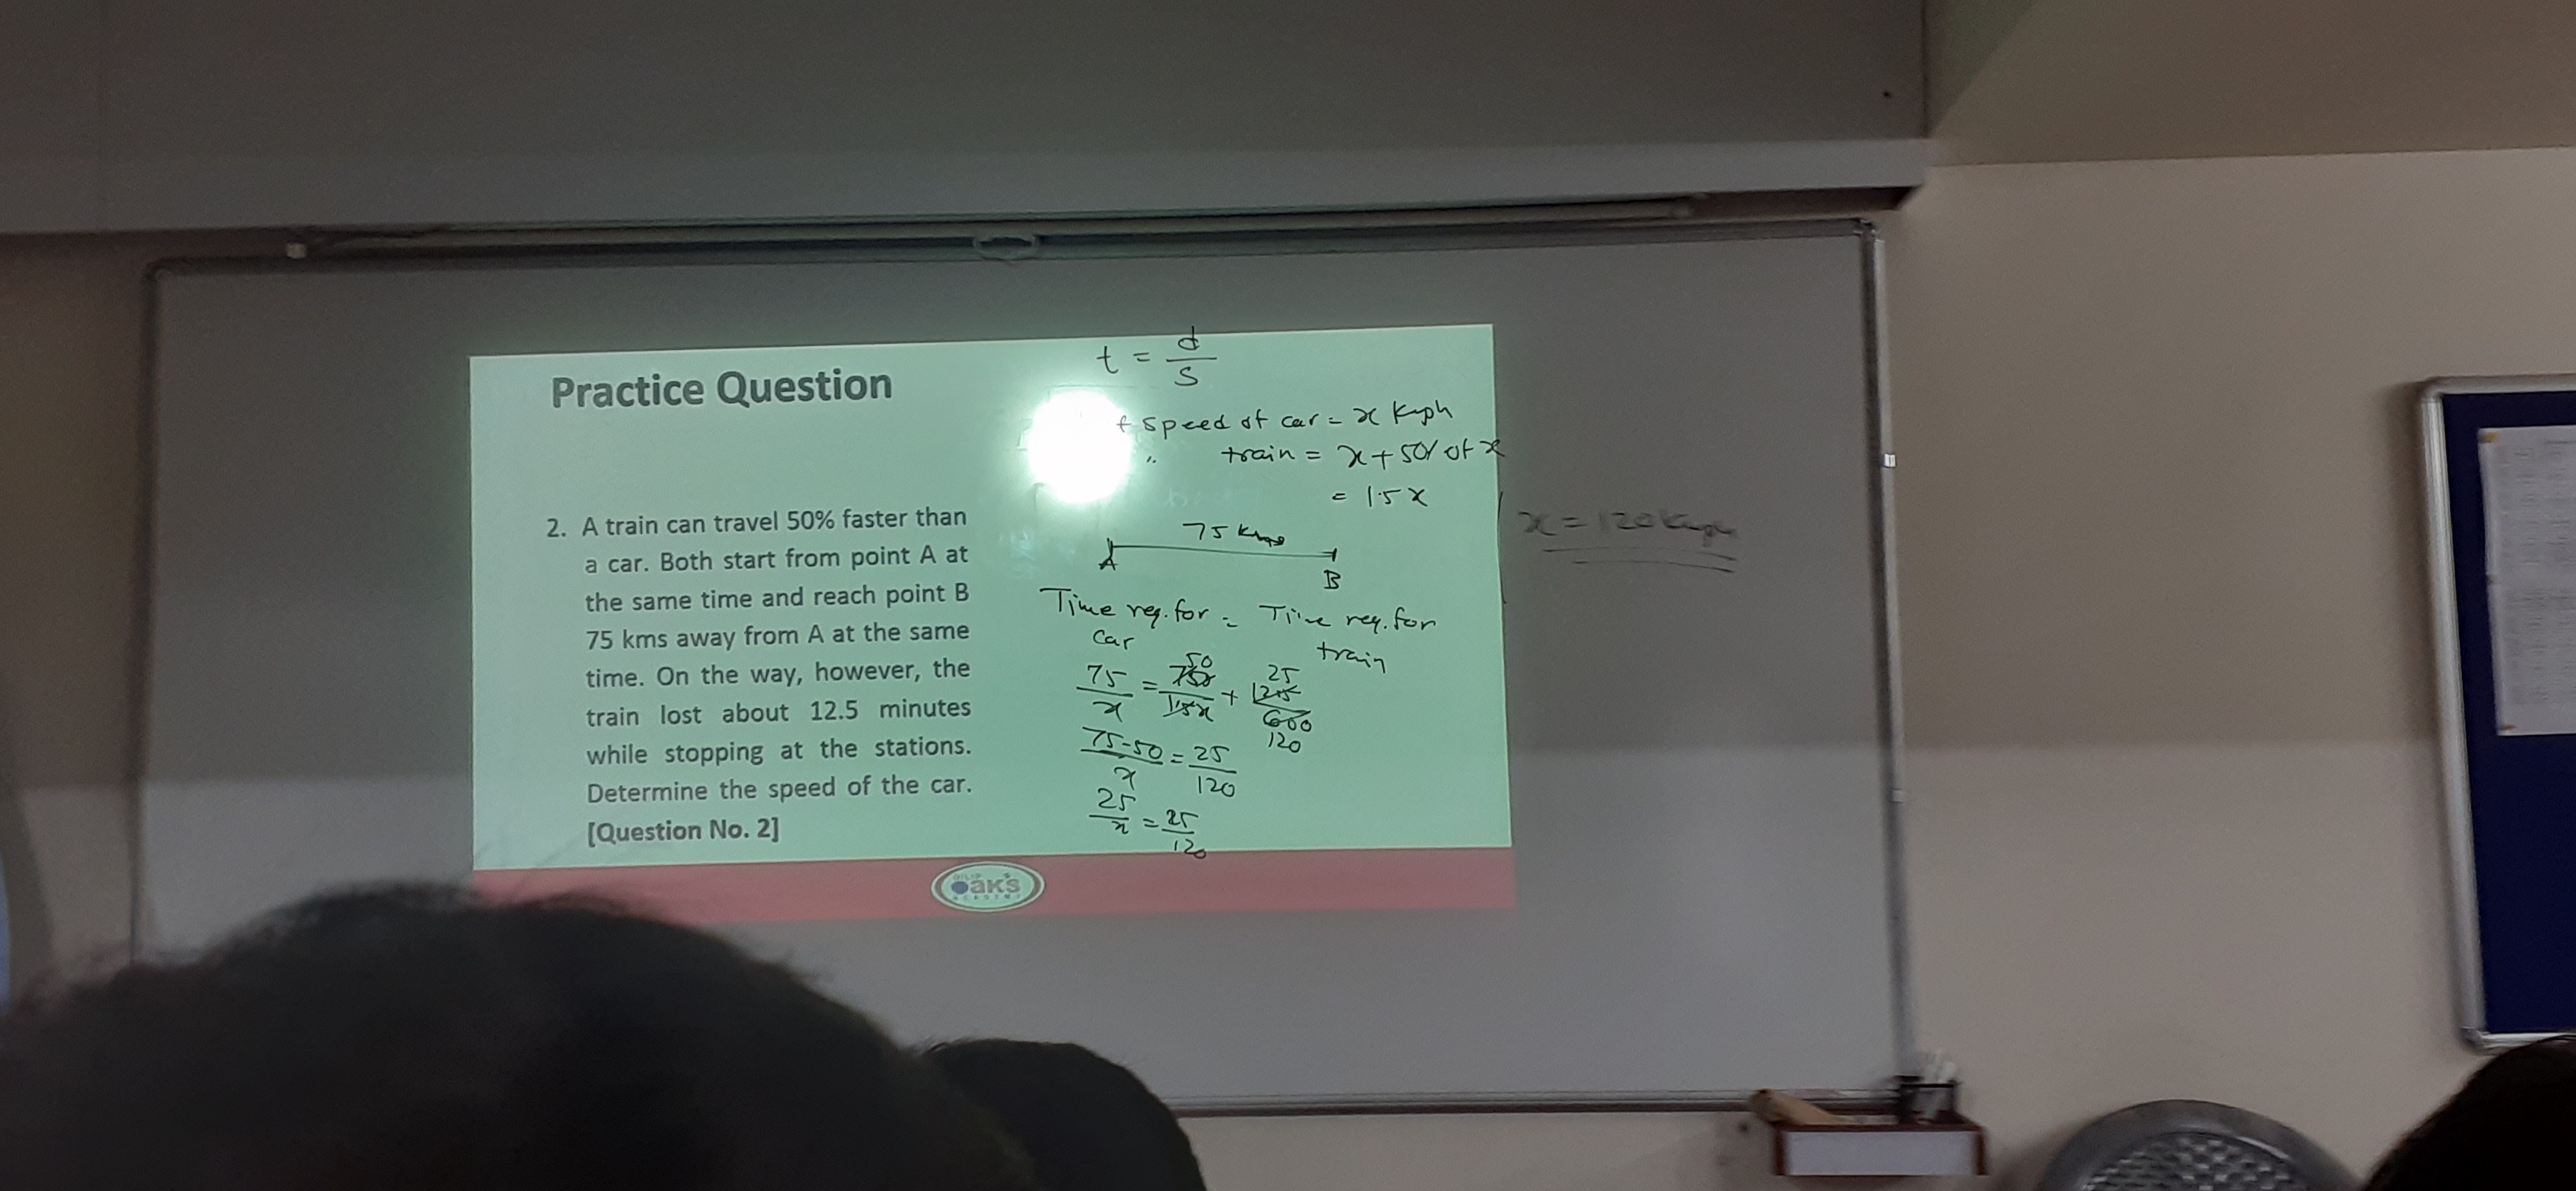 Practice Question
2. A train can travel 50% faster than
a car. Both start from point A at
the same time and reach point B
75 kms away from A at the same
time. On the way, however, the
train lost about 12.5 minutes
while stopping at the stations.
Determine the speed of the car.
[Question No. 2]
t = d/s
speed of car = x kmph
" train = x + 50% of x
= 1.5x
75 kms
A B
Time req. for = Time req. for
car train
75/x = 50/x + 25/120
75-50/x = 25/120
25/x = 25/120
x = 120 kmph
Oak's